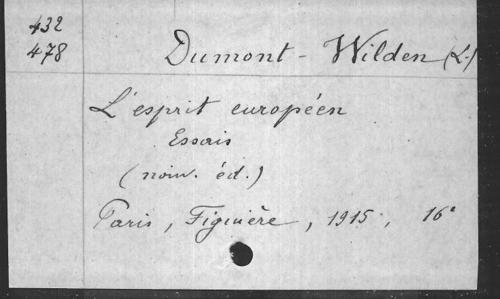 432
478
Dumont-Wilden (L.)
L'esprit européen
Essais
(nouv. éd.)
Paris, Figuière, 1915, 16°